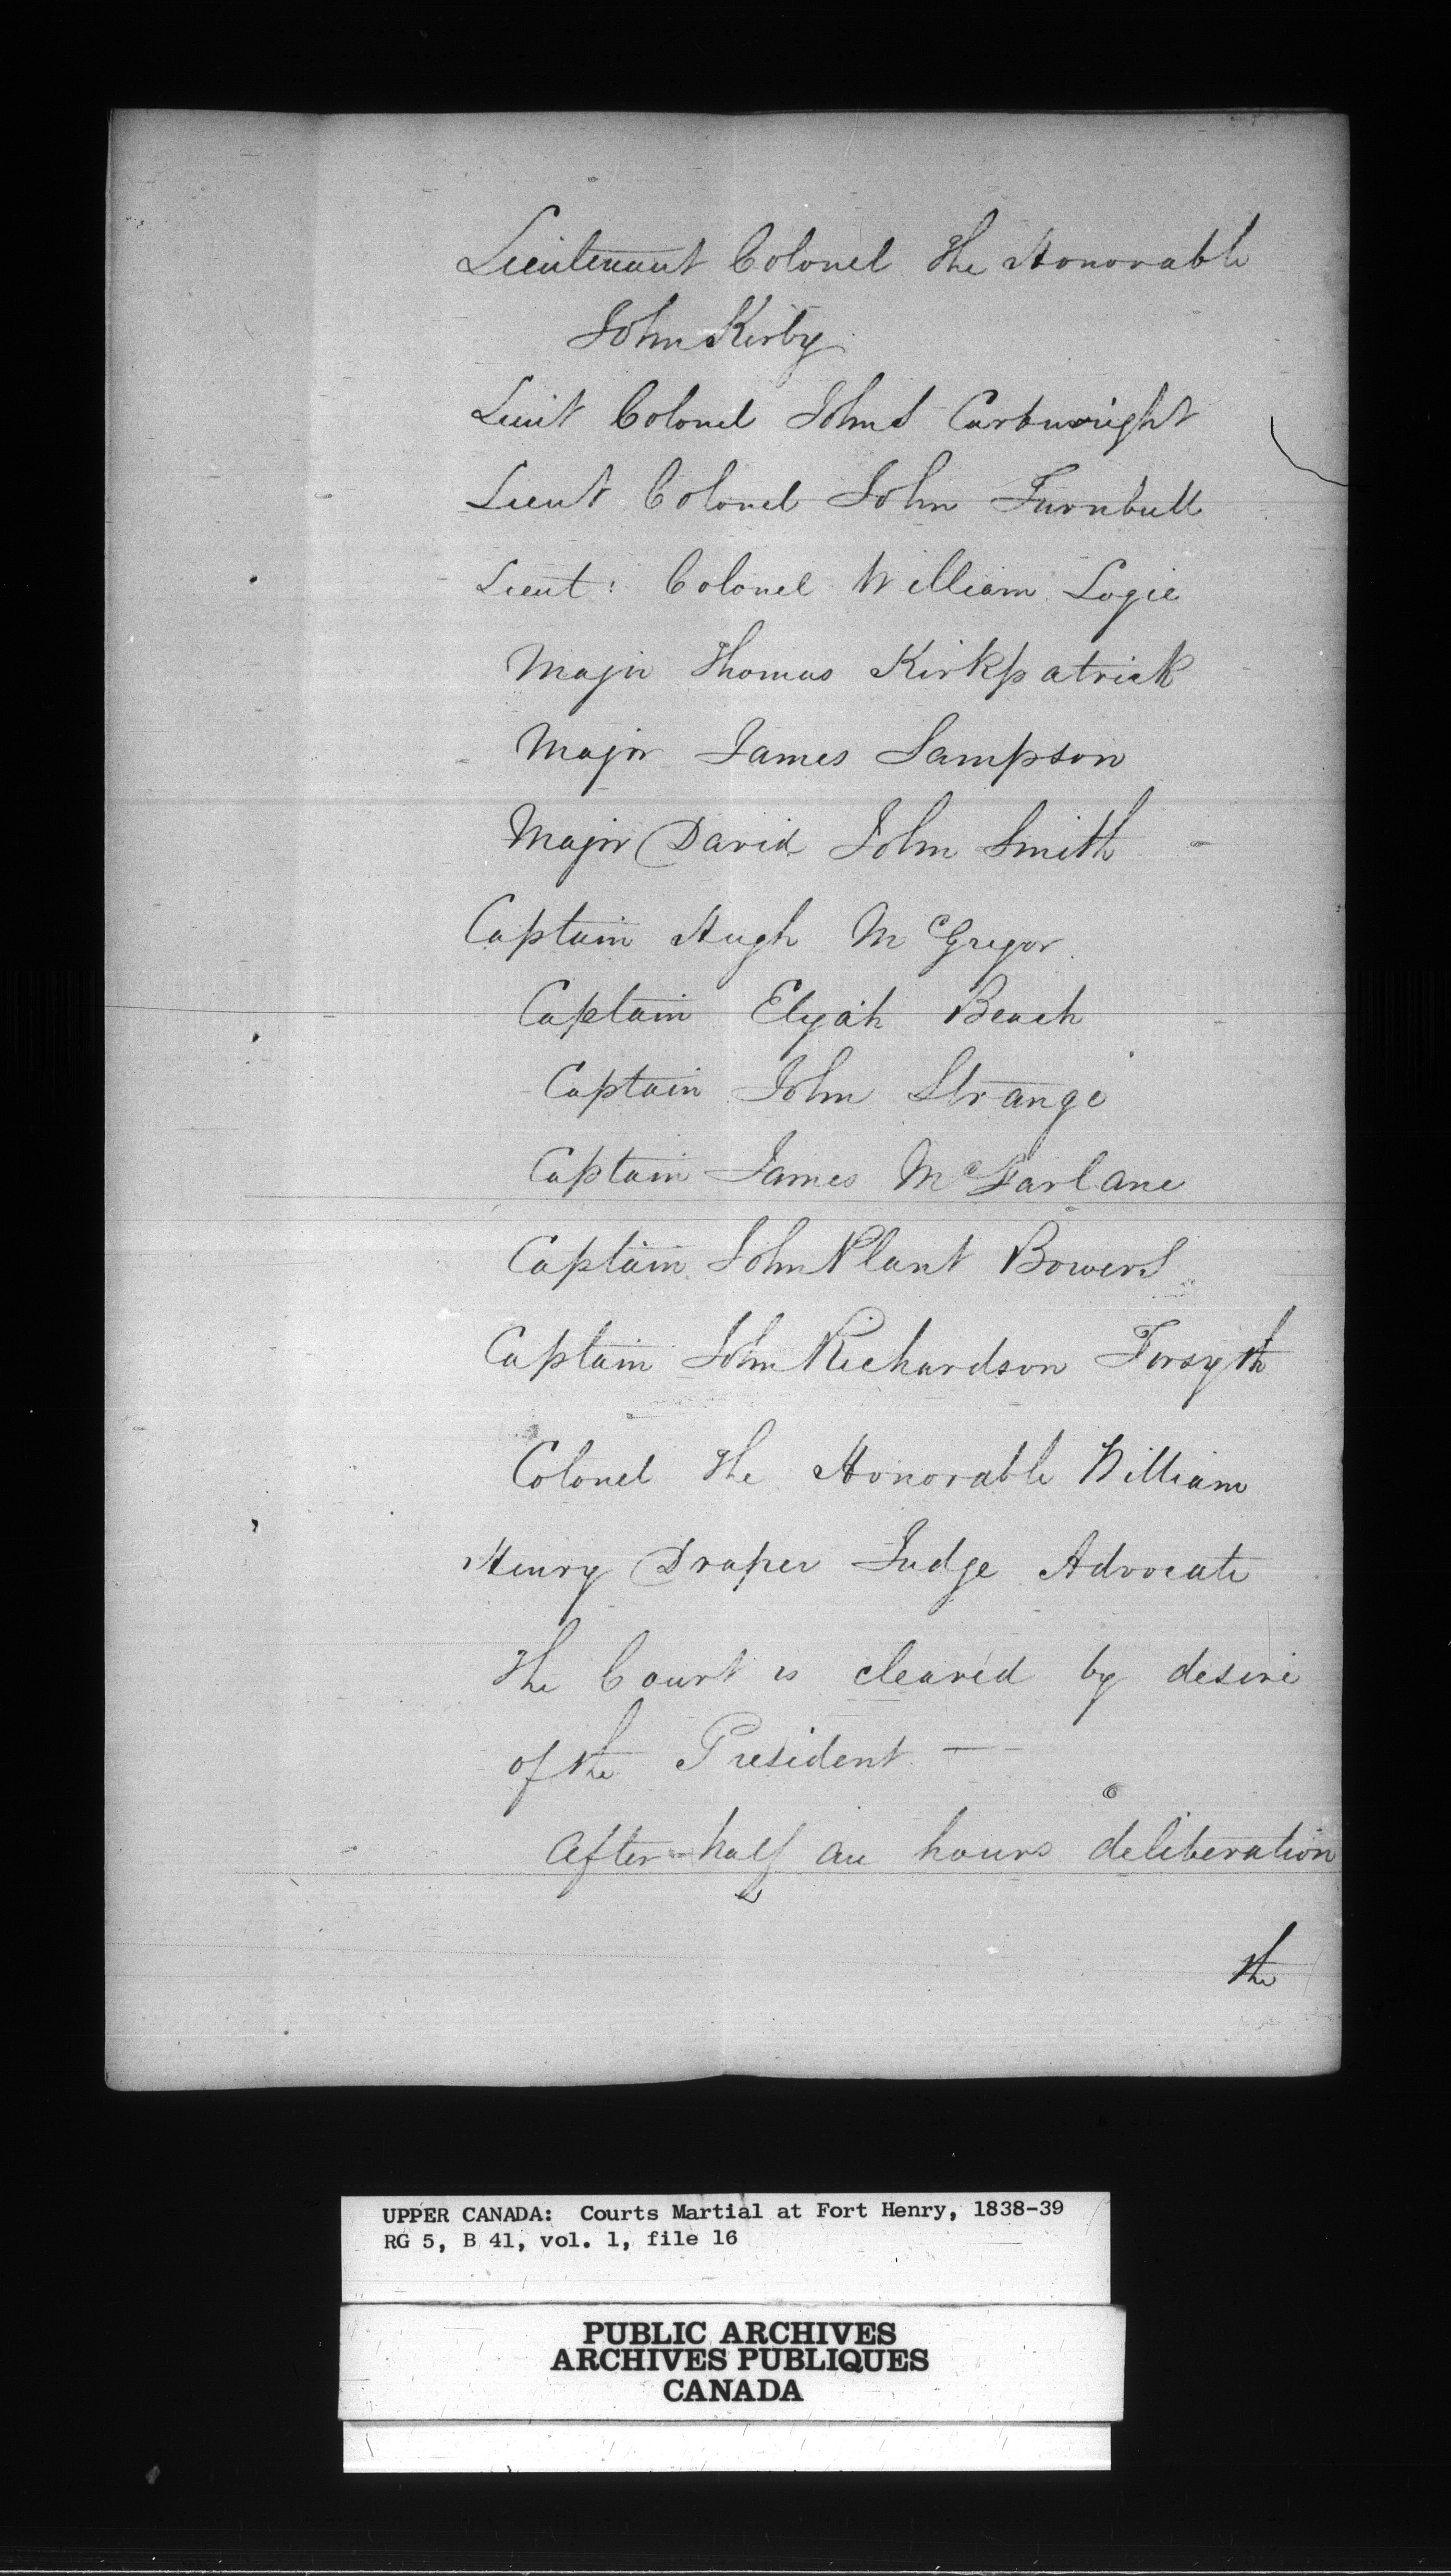 Lieutenant Colonel The Honorable
John Kirby
Lieut Colonel John S Cartwright
Lieut Colonel John Turnbull
Lieut : Colonel William Logie
Major Thomas Kirkpatrick
Major James Sampson
Major David John Smith
Captain Hugh McGregor
Captain Elijah Beach
Captain John Strange
Captain James McFarlane
Captain John Plant Bowers
Captain John Richardson Forsyth
Colonel The Honorable William
Henry Draper Judge Advocate
The Court is cleared by desire
of the President —
After half an hours deliberation
the
UPPER CANADA: Courts Martial at Fort Henry, 1838-39
RG 5, B 41, vol. 1, file 16
PUBLIC ARCHIVES
ARCHIVES PUBLIQUES
CANADA